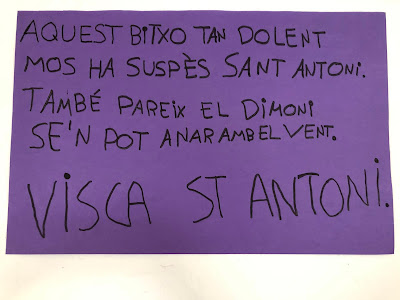 AQUEST BITXO TAN DOLENT
MOS HA SUSPÈS SANT ANTONI.
TAMBÉ PAREIX EL DIMONI
SE'N POT ANAR AMB EL VENT.
VISCA ST ANTONI.